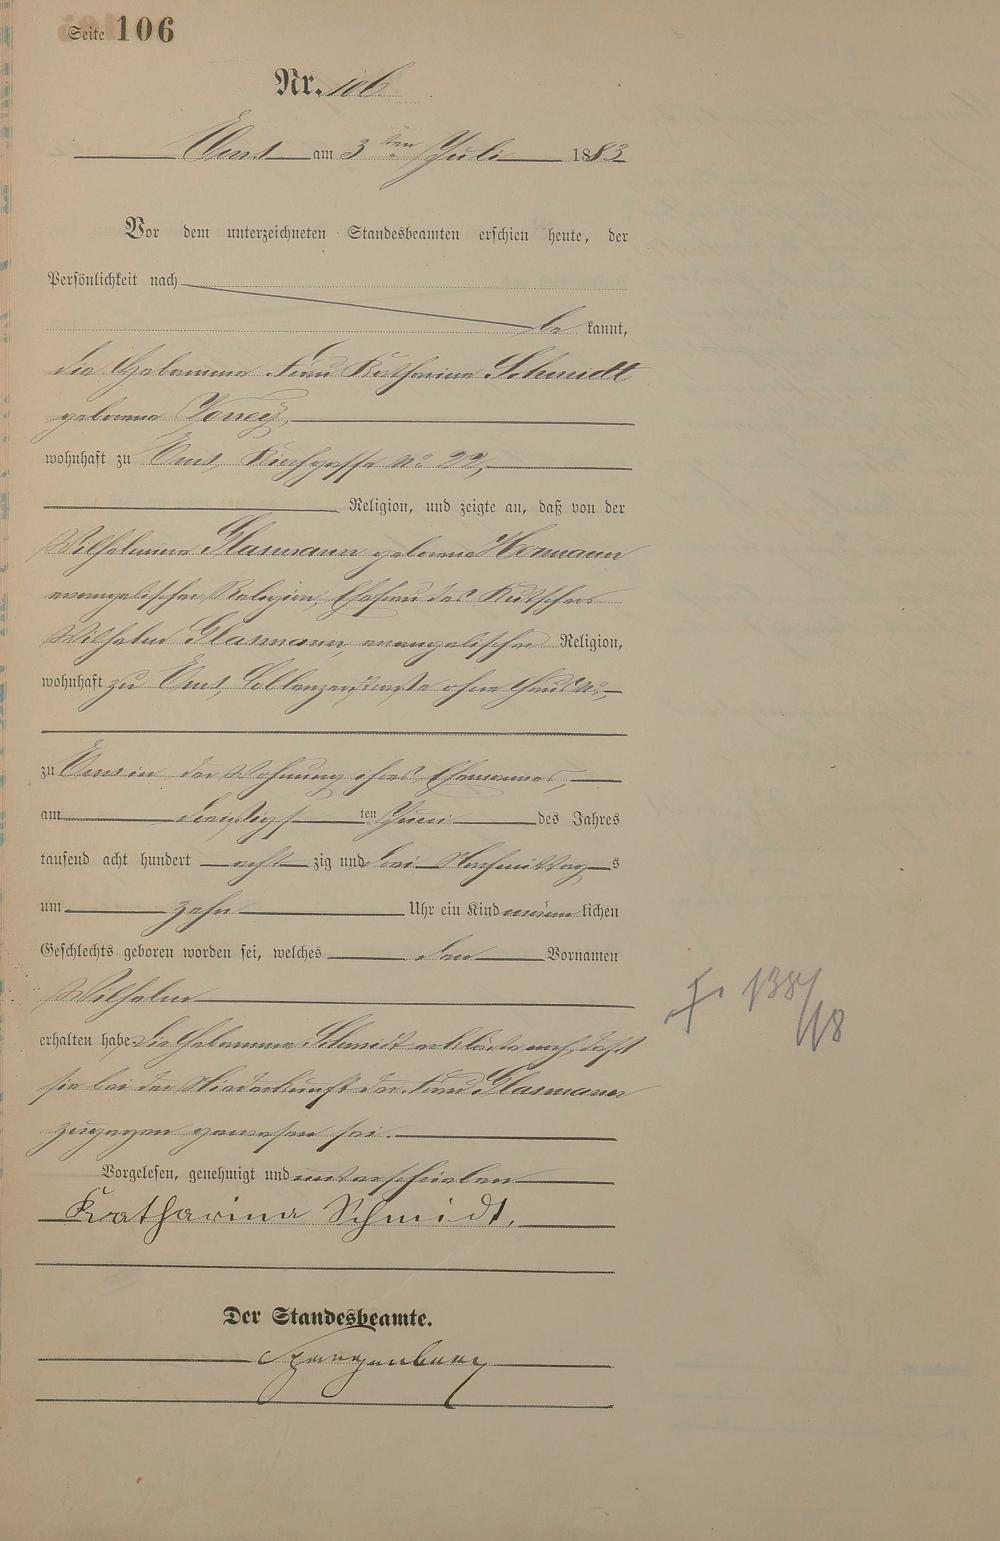 Seite 106
Nr. 106
Ems am 3ten Juli 1883
Vor dem unterzeichneten Standesbeamten erschien heute, der
Persönlichkeit nach
be kannt,
die Hebamme Frau Katharina Schmidt
geborene
wohnhaft zu Ems, Kirchgasse No 22,
Religion, und zeigte an, daß von der
Wilhelmine Glasmann geborene Hormann
evangelischer Religion, Ehefrau des Kutschers
Wilhelm Glasmann, evangelischer Religion,
wohnhaft zu Ems, Coblenzerstraße ohne Haus No,
zu Ems in der Wohnung ihres Ehemannes,
am dreißigsten Juni des Jahres
tausend acht hundert acht zig und drei Nachmittags
um zehn Uhr ein Kind männlichen
Geschlechts geboren worden sei, welches den Vornamen
Wilhelm
erhalten habe. Die Hebamme Schmidt erklärte noch, daß
sie bei der Niederkunft der Frau Glasmann
zugegen gewesen sei.
Vorgelesen, genehmigt und unterschrieben
Katharina Schmidt,
Der Standesbeamte.
Spangenberg